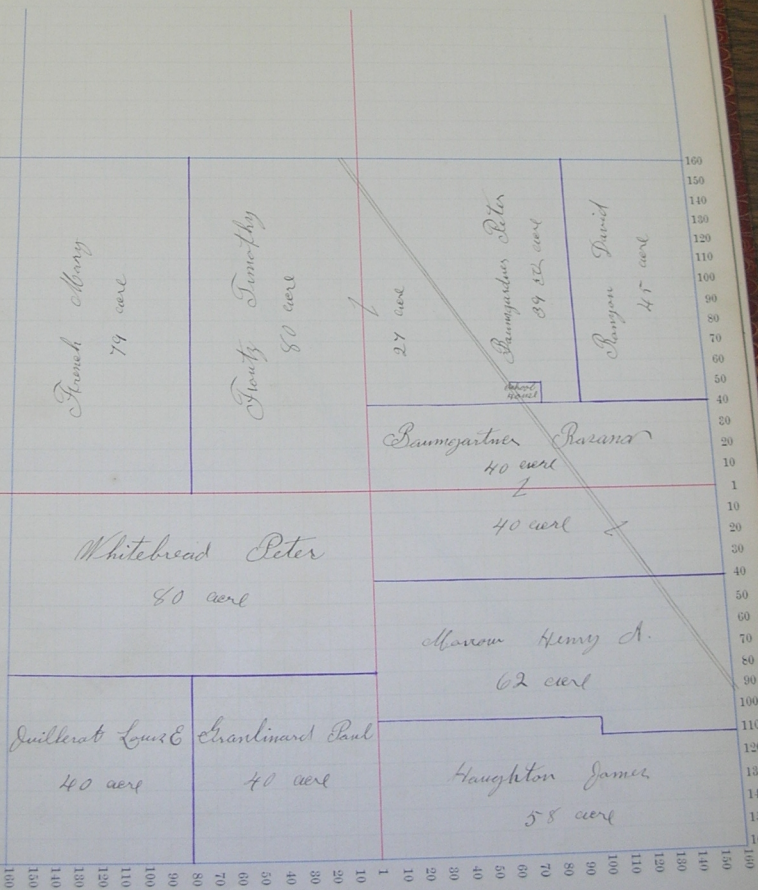 French Mary
79 acre
Froutz Timothy
80 acre
27 acre
Baumgardner Peter
39 acre
Runyon David
45 acre
School
House
Baumgartner Rosana
40 acre
40 acre
Whitebread Peter
80 acre
Henry A.
62 acre
Louis E
40 acre
Paul
40 acre
Houghton James
58 acre
160
150
140
130
120
110
100
90
80
70
60
50
40
30
20
10
1
10
20
30
40
50
60
70
80
90
100
110
160 150 140 130 120 110 100 90 80 70 60 50 40 30 20 10 1 10 20 30 40 50 60 70 80 90 100 110 120 130 140 150 160